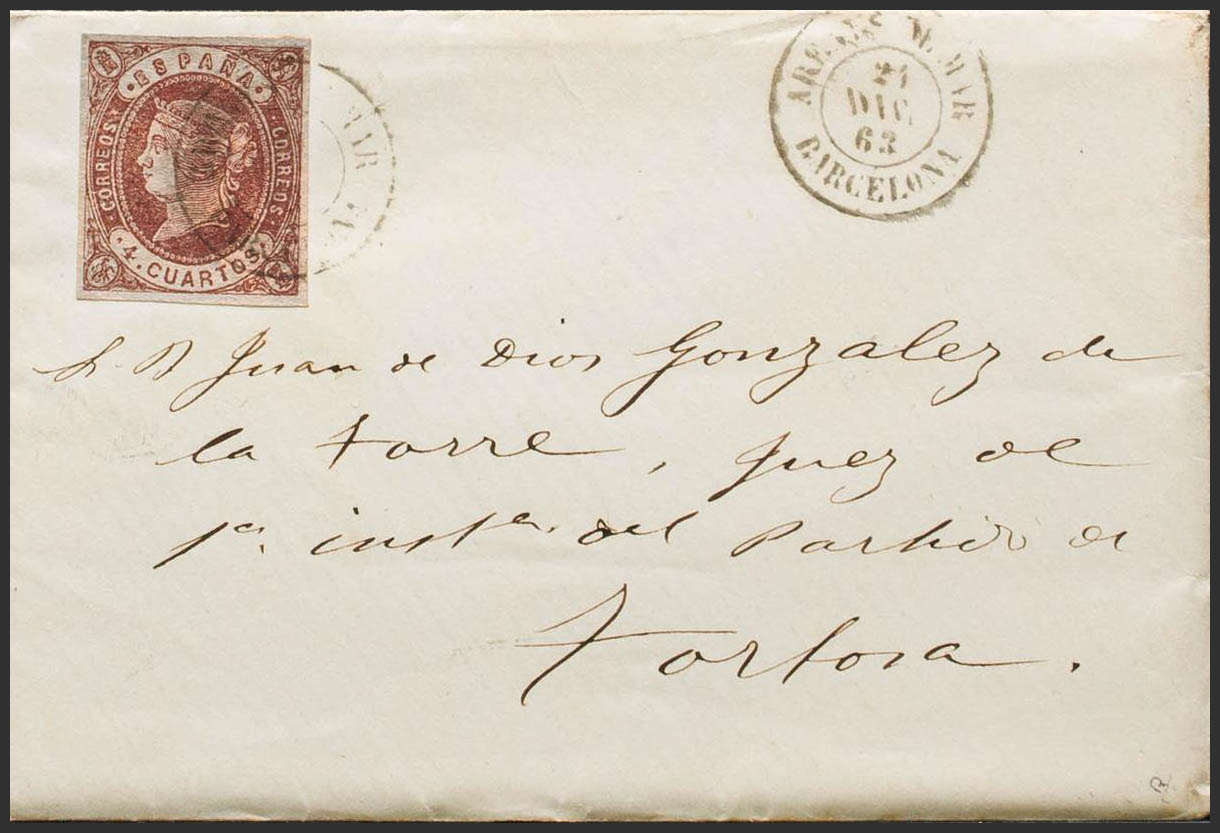 ESPAÑA
CORREOS CORREOS
4. CUARTOS
MAR
ARENYS D. MAR
21
DIC.
63
BARCELONA
S. D Juan de Dios Gonzalez de
la Torre, Juez de
1ª. instª. del Partido de
Tortosa.